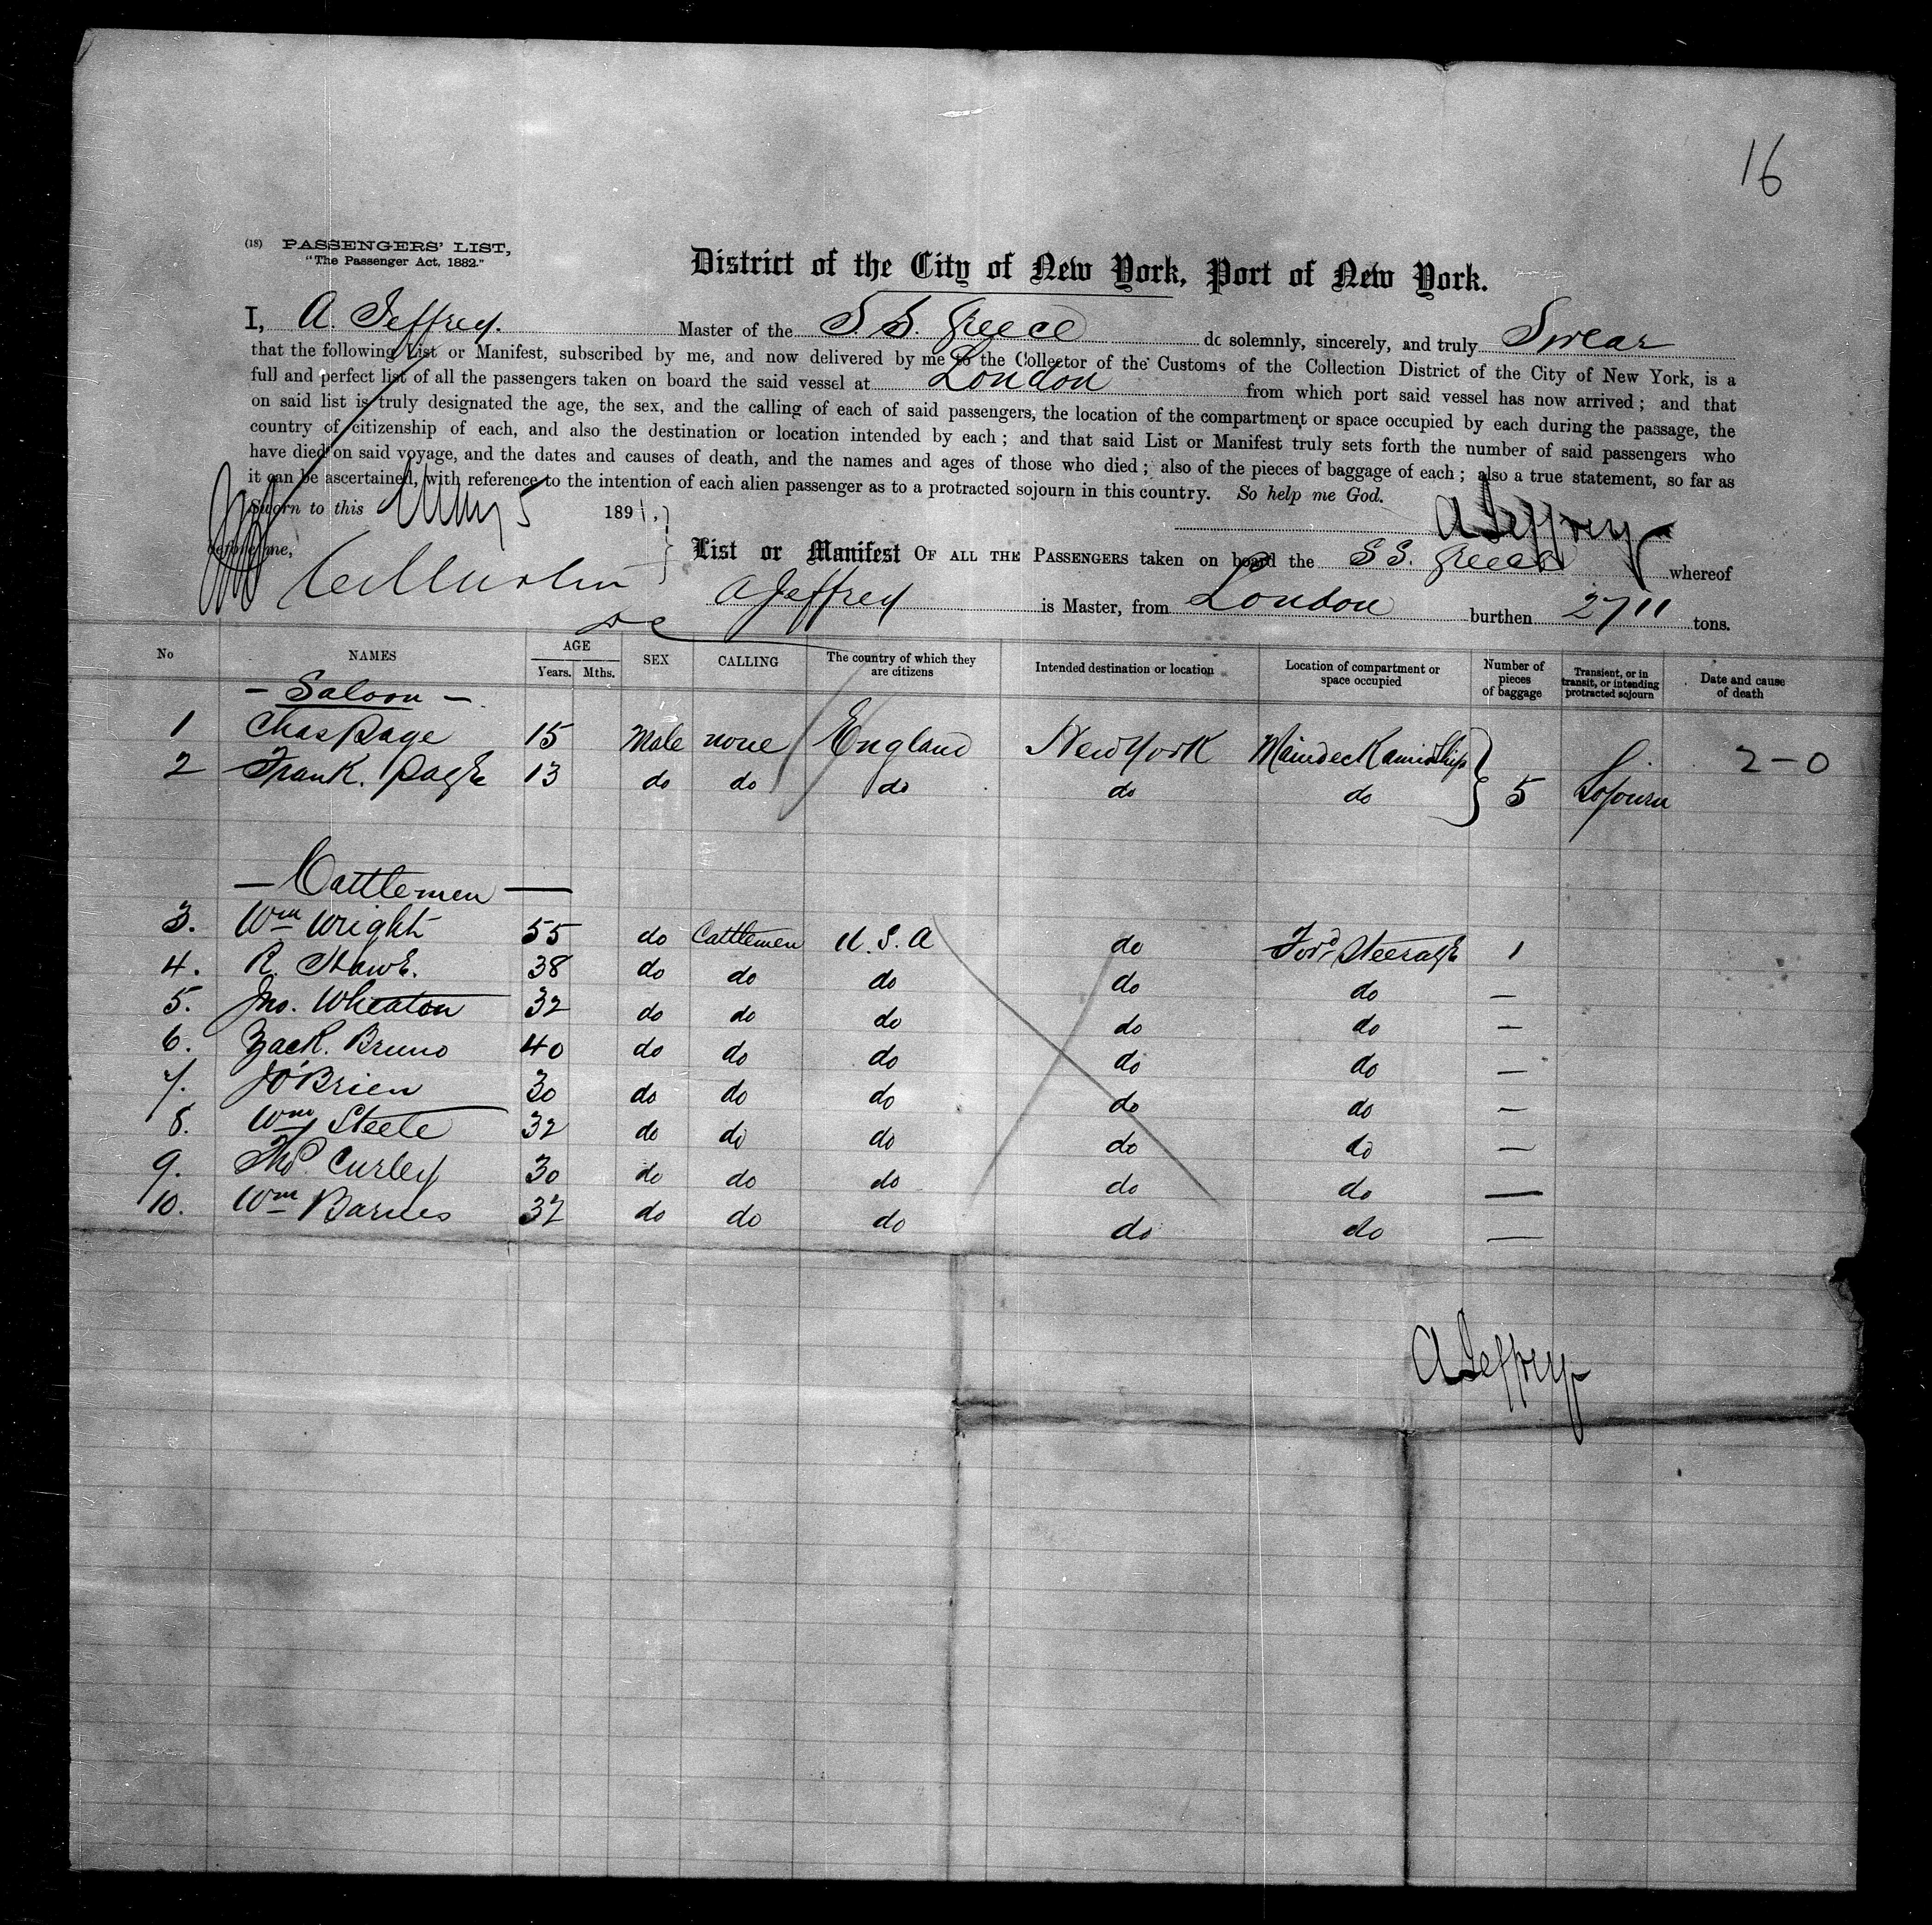 16
(18) PASSENGERS' LIST,
"The Passenger Act, 1882."
District of the City of New York, Port of New York.
I, A. Jeffrey. Master of the S.S. Greece do solemnly, sincerely, and truly Swear
that the following List or Manifest, subscribed by me, and now delivered by me to the Collector of the Customs of the Collection District of the City of New York, is a
full and perfect list of all the passengers taken on board the said vessel at London from which port said vessel has now arrived; and that
on said list is truly designated the age, the sex, and the calling of each of said passengers, the location of the compartment or space occupied by each during the passage, the
country of citizenship of each, and also the destination or location intended by each; and that said List or Manifest truly sets forth the number of said passengers who
have died on said voyage, and the dates and causes of death, and the names and ages of those who died; also of the pieces of baggage of each; also a true statement, so far as
it can be ascertained, with reference to the intention of each alien passenger as to a protracted sojourn in this country. So help me God.
Sworn to this 5 1891,
A Jeffrey
before me,
List or Manifest OF ALL THE PASSENGERS taken on board the S S. Greece whereof
A Jeffrey is Master, from London burthen 2711 tons.
No NAMES AGE Years. Mths. SEX CALLING The country of which they are citizens Intended destination or location Location of compartment or space occupied Number of pieces of baggage Transient, or in transit, or intending protracted sojourn Date and cause of death
- Saloon -
1 Chas Page 15 Male none England New York Maindeck amidship
2 Frank. Page 13 do do do do do 5 Sojourn 2-0
- Cattlemen -
3. Wm Wright 55 do Cattlemen U.S.A do Ford Steerage 1
4. R. Howe. 38 do do do do do —
5. Jno. Wheaton 32 do do do do do —
6. Zack. Bruno 40 do do do do do —
7. J O'Brien 30 do do do do do —
8. Wm Steele 32 do do do do do —
9. Thos. Curley 30 do do do do do —
10. Wm Barnes 32 do do do do do —
A Jeffrey